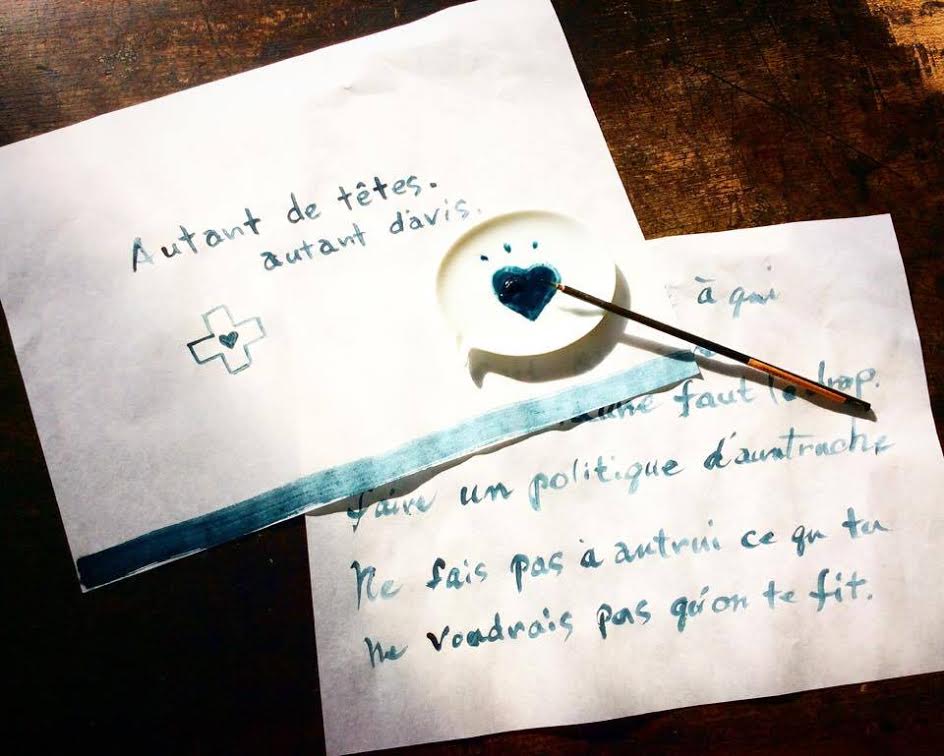 Autant de têtes.
autant d'avis.
à qui
faut le drap.
faire un politique d'auatruche
Ne fais pas à autrui ce qu tu
ne voudrais pas qu'on te fit.